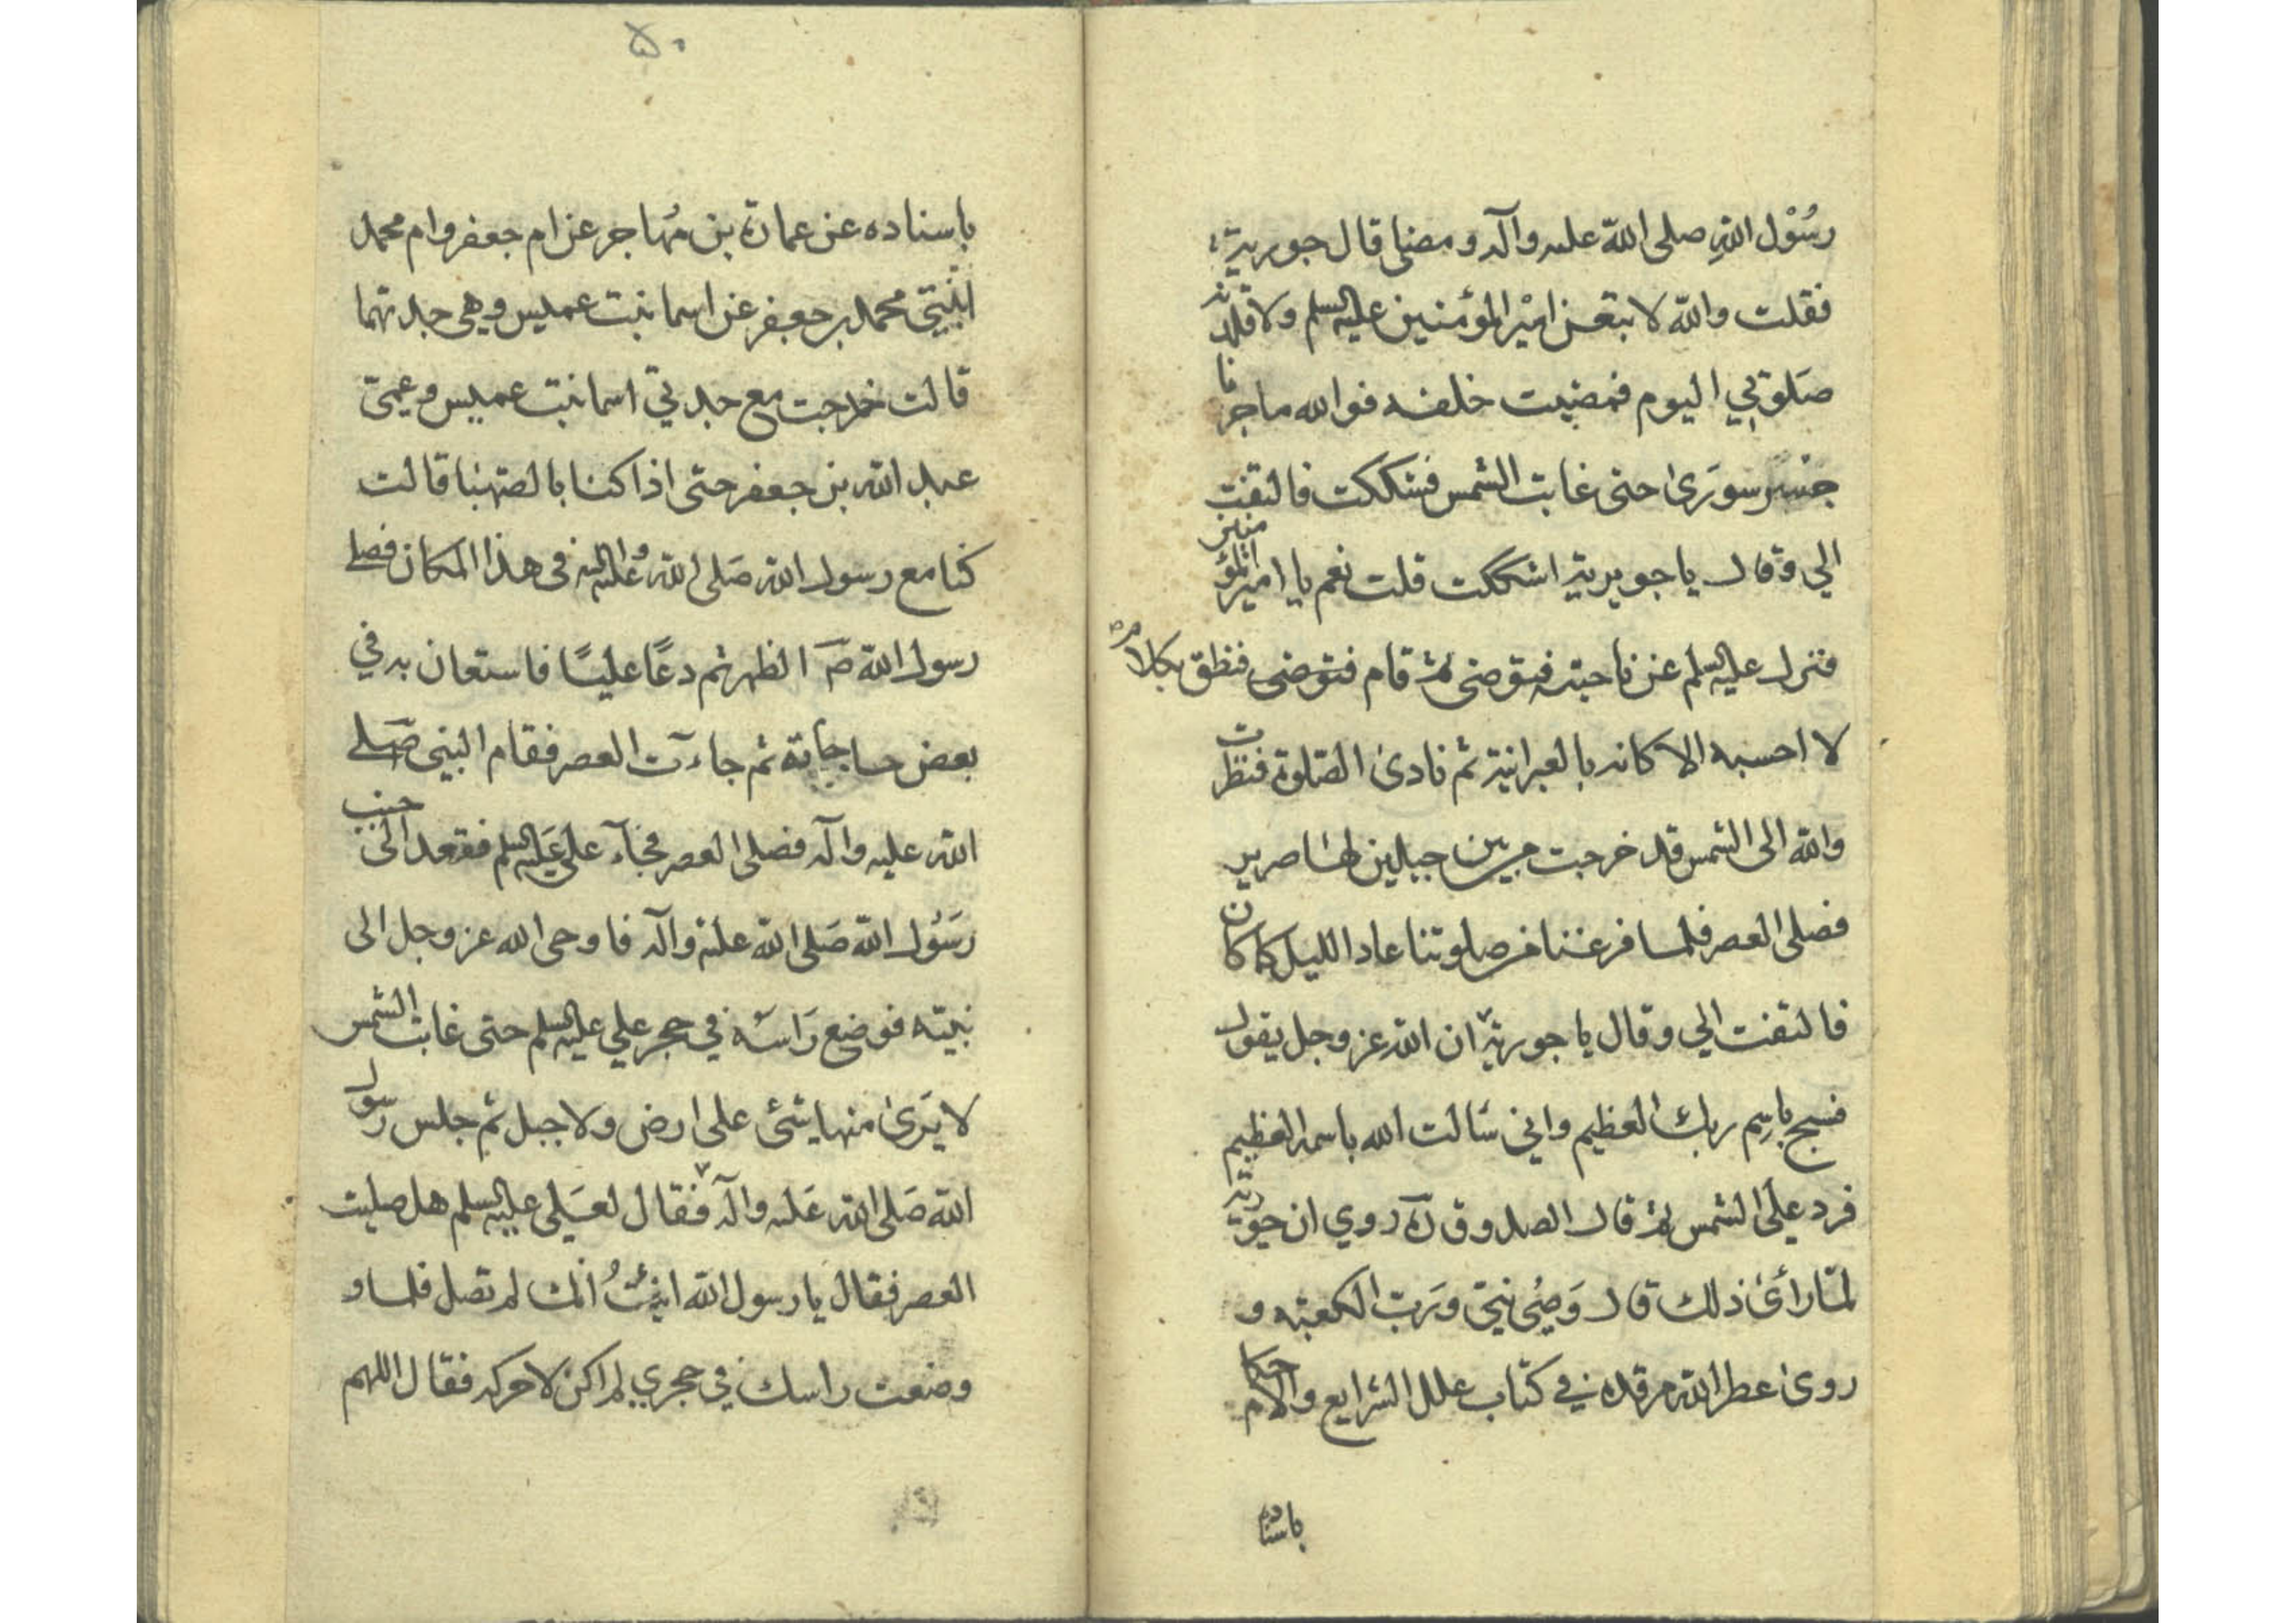 رسُوْل اللهِ صلى اللهّ عليه وآله و مضنا قال جويرية
فقلت والله لا تبعن اميْر المؤمنين عليه السلم ولا قلدنه
صلوتي اليوم فمضيت خلفه فوالله ما جزنا
جسر سورَىٰ حتى غابت الشمس فشككت فالتفت
الي و قال يا جويرية اشككت قلت نعم يا امير المؤمنين
فنزل عليه السلم عن ناحية فتوضى ثم قام فتوضى فنطق بكلام
لا احسبه الا كانه بالعبرانية ثم نادىٰ الصّلوة فنظرت
والله الى الشمس قد خرجت من بين جبلين لها صرير
فصلى العصر فلما فرغنا من صلوتنا عاد الليل كما كان
فالتفت الي وقال يا جويرية ان اللهِ عز وجل يقول
فسبح باسِم ربك العظيم واني سَالت الله باسمه العظيم
فرد علىَ الشمس ثم قال الصدوق ره روي ان جويرية
لمّا رأىٰ ذلك قال وَصِىُ نبيّ ورَبّ الكعبته و
روىٰ عطر الله مرقده في كتاب علل الشرايع والاحكام
باسناده
٥٠
باسناده عن عمارة بن مُهاجر عن ام جعفر وام محمد
ابْنتي محمد بن جعفر عن اسما بنت عميس وهي جدتهما
قالت خرجت مع جدتي اسما بنت عميس وعمتي
عبد الله بن جعفر حتى اذا كنا بالصّهبا قالت
كنا مع رسول الله صَلى الله عليه واله في هذا المكان فصلے
رسول الله صَ الظهر ثم دعَا عليًا فاستعان به في
بعض حاجاته ثم جاءت العصر فقام النبي صَلے
الله عليه وآله فصلى العصر فجآء علي عَليه السلم فقعد الى جنب
رَسُول الله صَلى الله عليه وآله فاوحى الله عز وجل الى
نبيّه فوضع رَاسَه في حجر علي عليه السلم حتى غابت الشمس
لا يَرىٰ منها شئ على ارض ولا جبل ثم جلس رسول
الله صَلى الله عَليه وآله فقال لعَلي عليه السلم هل صليت
العصر فقال يا رسول الله انبئتُ أنك لم تصل فلما و
وضعت راسك في حجري لم اكن لاحركه فقال اللهم